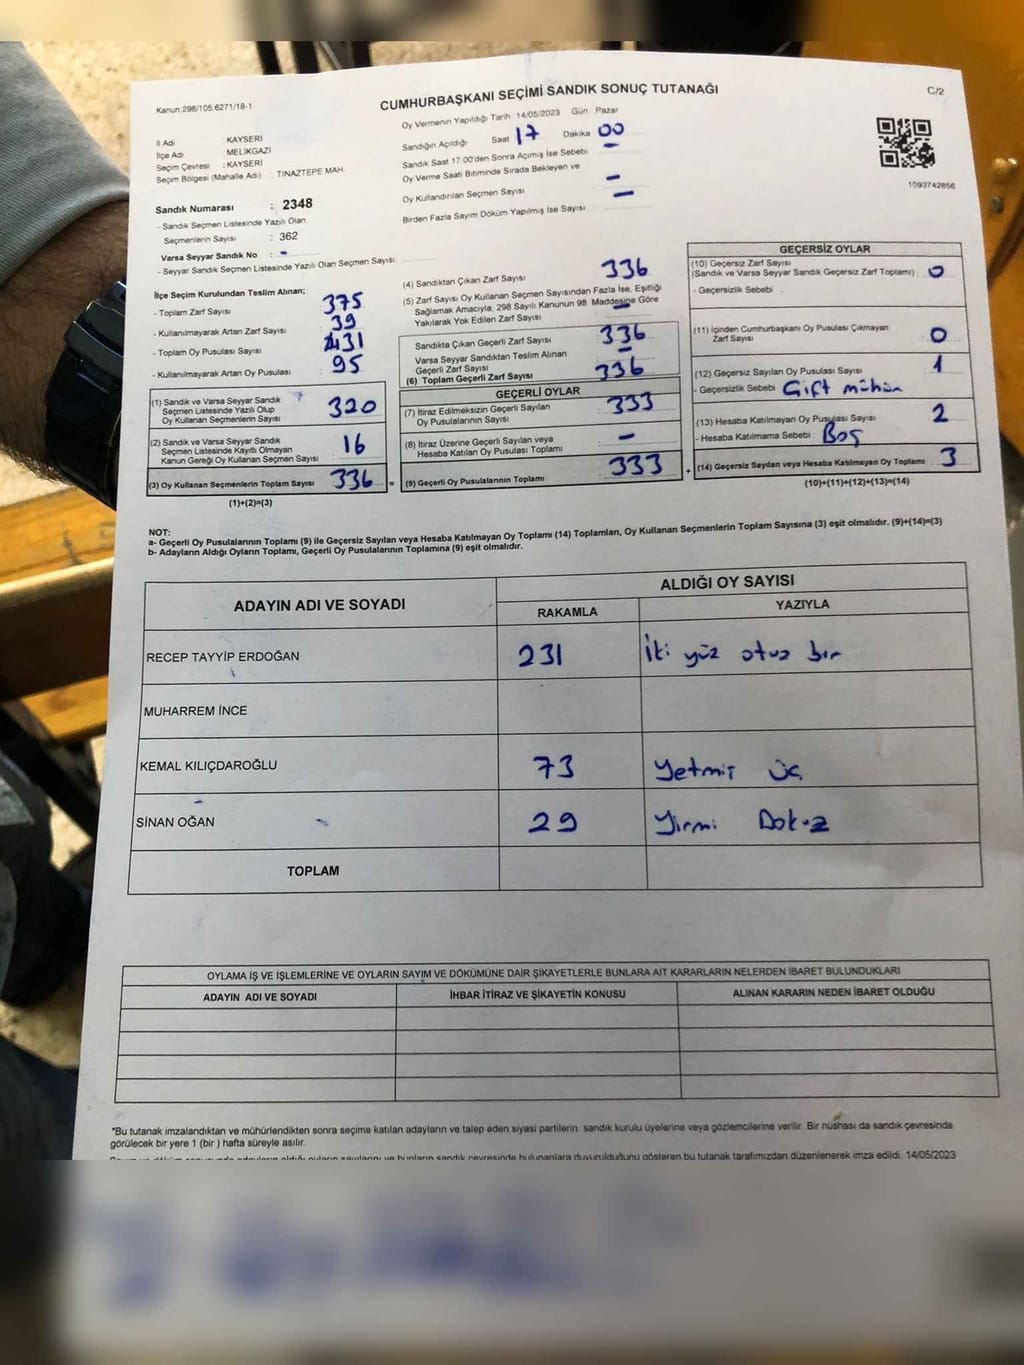 Kanun:298/105:6271/18-1
CUMHURBAŞKANI SEÇİMİ SANDIK SONUÇ TUTANAĞI
C/2
Oy Vermenin Yapıldığı Tarih 14/05/2023 Gün: Pazar
İl Adı : KAYSERİ
İlçe Adı : MELİKGAZİ
Seçim Çevresi : KAYSERİ
Seçim Bölgesi (Mahalle Adı) : TINAZTEPE MAH.
Sandık Numarası : 2348
- Sandık Seçmen Listesinde Yazılı Olan
Seçmenlerin Sayısı : 362
Varsa Seyyar Sandık No : -
- Seyyar Sandık Seçmen Listesinde Yazılı Olan Seçmen Sayısı:
Sandığın Açıldığı Saat 17 Dakika 00
Sandık Saat 17:00'den Sonra Açımış İse Sebebi -
Oy Verme Saati Bitiminde Sırada Bekleyen ve
Oy Kullandırılan Seçmen Sayısı -
Birden Fazla Sayım Döküm Yapılmış İse Sayısı -
1093742856
İlçe Seçim Kurulundan Teslim Alınan;
- Toplam Zarf Sayısı 375
- Kullanılmayarak Artan Zarf Sayısı 39
- Toplam Oy Pusulası Sayısı 431
- Kullanılmayarak Artan Oy Pusulası 95
(1) Sandık ve Varsa Seyyar Sandık
Seçmen Listesinde Yazılı Olup
Oy Kullanan Seçmenlerin Sayısı 320
(2) Sandık ve Varsa Seyyar Sandık
Seçmen Listesinde Kayıtlı Olmayan
Kanun Gereği Oy Kullanan Seçmen Sayısı 16
(3) Oy Kullanan Seçmenlerin Toplam Sayısı 336 =
(1)+(2)=(3)
(4) Sandıktan Çıkan Zarf Sayısı 336
(5) Zarf Sayısı Oy Kullanan Seçmen Sayısından Fazla İse, Eşitliği
Sağlamak Amacıyla, 298 Sayılı Kanunun 98. Maddesine Göre
Yakılarak Yok Edilen Zarf Sayısı -
Sandıkta Çıkan Geçerli Zarf Sayısı 336
Varsa Seyyar Sandıktan Teslim Alınan
Geçerli Zarf Sayısı -
(6) Toplam Geçerli Zarf Sayısı 336
GEÇERLİ OYLAR
(7) İtiraz Edilmeksizin Geçerli Sayılan
Oy Pusulalarının Sayısı 333
(8) İtiraz Üzerine Geçerli Sayılan veya
Hesaba Katılan Oy Pusulası Toplamı -
(9) Geçerli Oy Pusulalarının Toplamı 333 +
GEÇERSİZ OYLAR
(10) Geçersiz Zarf Sayısı
(Sandık ve Varsa Seyyar Sandık Geçersiz Zarf Toplamı) : 0
- Geçersizlik Sebebi
(11) İçinden Cumhurbaşkanı Oy Pusulası Çıkmayan
Zarf Sayısı 0
(12) Geçersiz Sayılan Oy Pusulası Sayısı 1
- Geçersizlik Sebebi Çift mühür
(13) Hesaba Katılmayan Oy Pusulası Sayısı 2
- Hesaba Katılmama Sebebi Boş
(14) Geçersiz Sayılan veya Hesaba Katılmayan Oy Toplamı 3
(10)+(11)+(12)+(13)=(14)
NOT:
a- Geçerli Oy Pusulalarının Toplamı (9) ile Geçersiz Sayılan veya Hesaba Katılmayan Oy Toplamı (14) Toplamları, Oy Kullanan Seçmenlerin Toplam Sayısına (3) eşit olmalıdır. (9)+(14)=(3)
b- Adayların Aldığı Oyların Toplamı, Geçerli Oy Pusulalarının Toplamına (9) eşit olmalıdır.
ADAYIN ADI VE SOYADI
ALDIĞI OY SAYISI
RAKAMLA YAZIYLA
RECEP TAYYİP ERDOĞAN 231 İki yüz otuz bir
MUHARREM İNCE
KEMAL KILIÇDAROĞLU 73 Yetmiş üç
SİNAN OĞAN 29 Yirmi Dokuz
TOPLAM
OYLAMA İŞ VE İŞLEMLERİNE VE OYLARIN SAYIM VE DÖKÜMÜNE DAİR ŞİKAYETLERLE BUNLARA AİT KARARLARIN NELERDEN İBARET BULUNDUKLARI
ADAYIN ADI VE SOYADI İHBAR İTİRAZ VE ŞİKAYETİN KONUSU ALINAN KARARIN NEDEN İBARET OLDUĞU
*Bu tutanak imzalandıktan ve mühürlendikten sonra seçime katılan adayların ve talep eden siyasi partilerin sandık kurulu üyelerine veya gözlemcilerine verilir. Bir nüshası da sandık çevresinde
görülecek bir yere 1 (bir) hafta süreyle asılır.
Sayım ve döküm sonucunda adayların aldığı oyların sayılarını ve bunların sandık çevresinde bulunanlara duyurulduğunu gösteren bu tutanak tarafımızdan düzenlenerek imza edildi. 14/05/2023